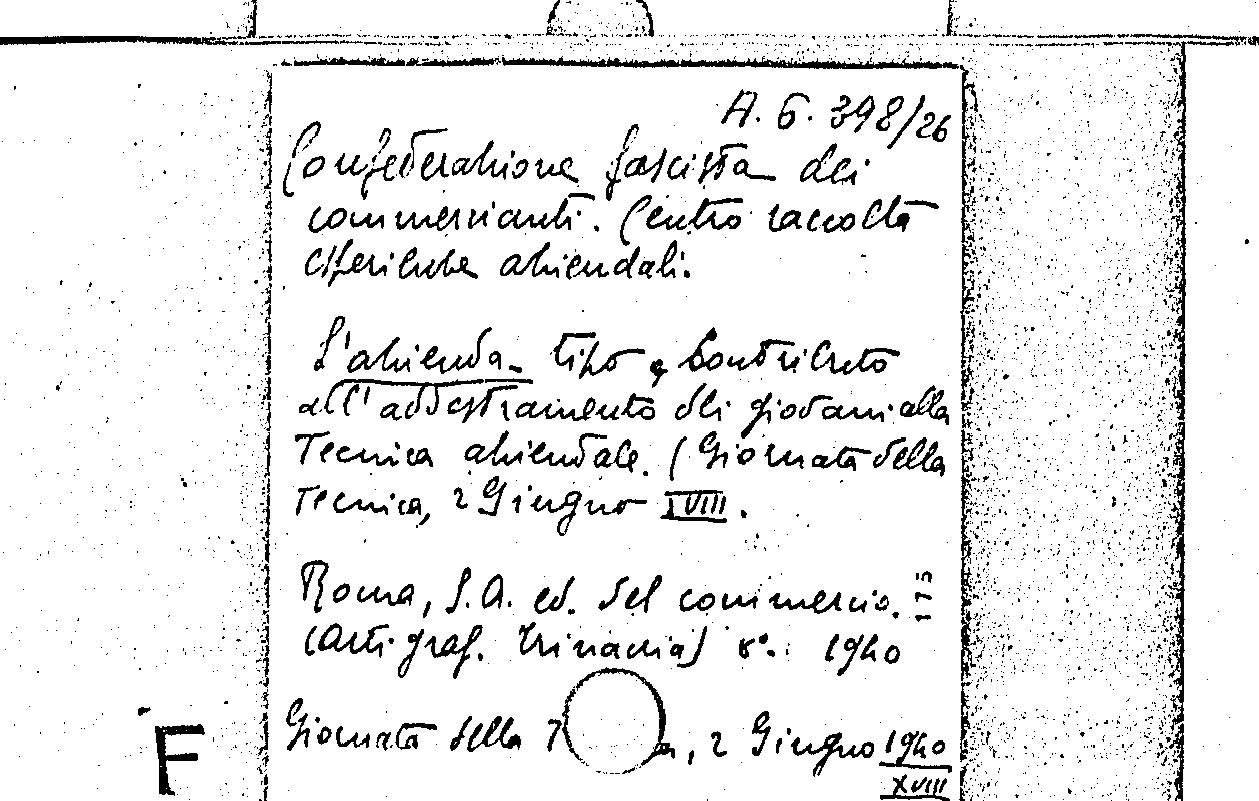 A. 6. 398/26
Confederazione fascista dei
commercianti. Centro raccolta
esperienze aziendali.
L'azienda-tipo e contributo
all'addestramento dei giovani alla
Tecnica aziendale. (Giornata della
Tecnica, 2 Giugno XVIII.
Roma, S.A. ed. del commercio.
(Arti graf. Trinacria) 8°. 1940
Giornata della T a, 2 Giugno 1940
XVIII
F